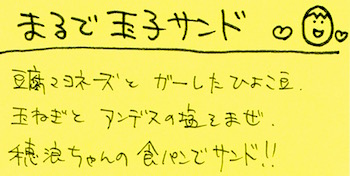 まるで玉子サンド
豆腐マヨネーズと ガーしたひよこ豆.
玉ねぎと アンデスの塩をまぜ.
穂浪ちゃんの食パンでサンド!!